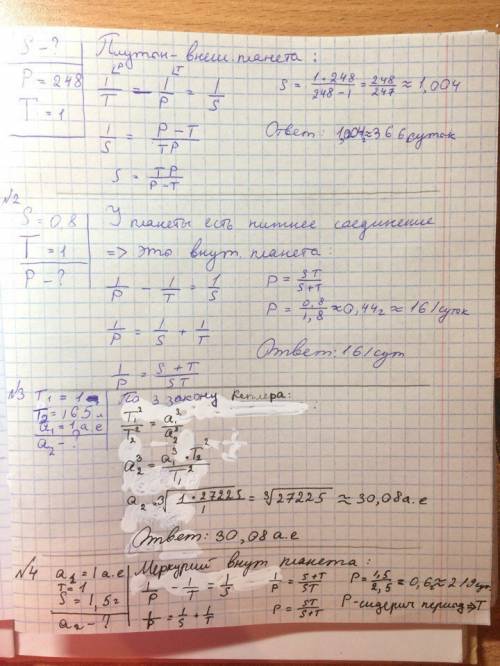 S - ?
P = 248
T = 1
Плутон - внеш. планета:
1/T - 1/P = 1/S
1/S = (P - T)/(TP)
S = TP/(P - T)
S = (1 · 248)/(248 - 1) = 248/247 ≈ 1,004
Ответ: 1,004 ≈ 366 суток
№2
S = 0,8
T = 1
P - ?
У планеты есть нижнее соединение
=> это внут. планета:
1/P - 1/T = 1/S
1/P = 1/S + 1/T
1/P = (S + T)/(ST)
P = ST/(S+T)
P = 0,8/1,8 ≈ 0,44г ≈ 161 суток
Ответ: 161 сут
№3
T₁ = 1
T₂ = 165 л
a₁ = 1 а е
a₂ - ?
По 3 закону Кеплера:
T₁²/T₂² = a₁³/a₂³
a₂³ = (a₁³ · T₂²)/T₁²
a₂ = ³√((1 · 27225)/1) = ³√27225 ≈ 30,08 а.е
Ответ: 30,08 а.е
№4
a₁ = 1 а.е
T = 1
S = 1,5г
a₂ - ?
Меркурий внут планета:
1/P - 1/T = 1/S
1/P = 1/S + 1/T
1/P = (S+T)/(ST)
P = ST/(S+T)
P = 1,5/2,5 ≈ 0,6г ≈ 219 сут
P - сидерич период => T